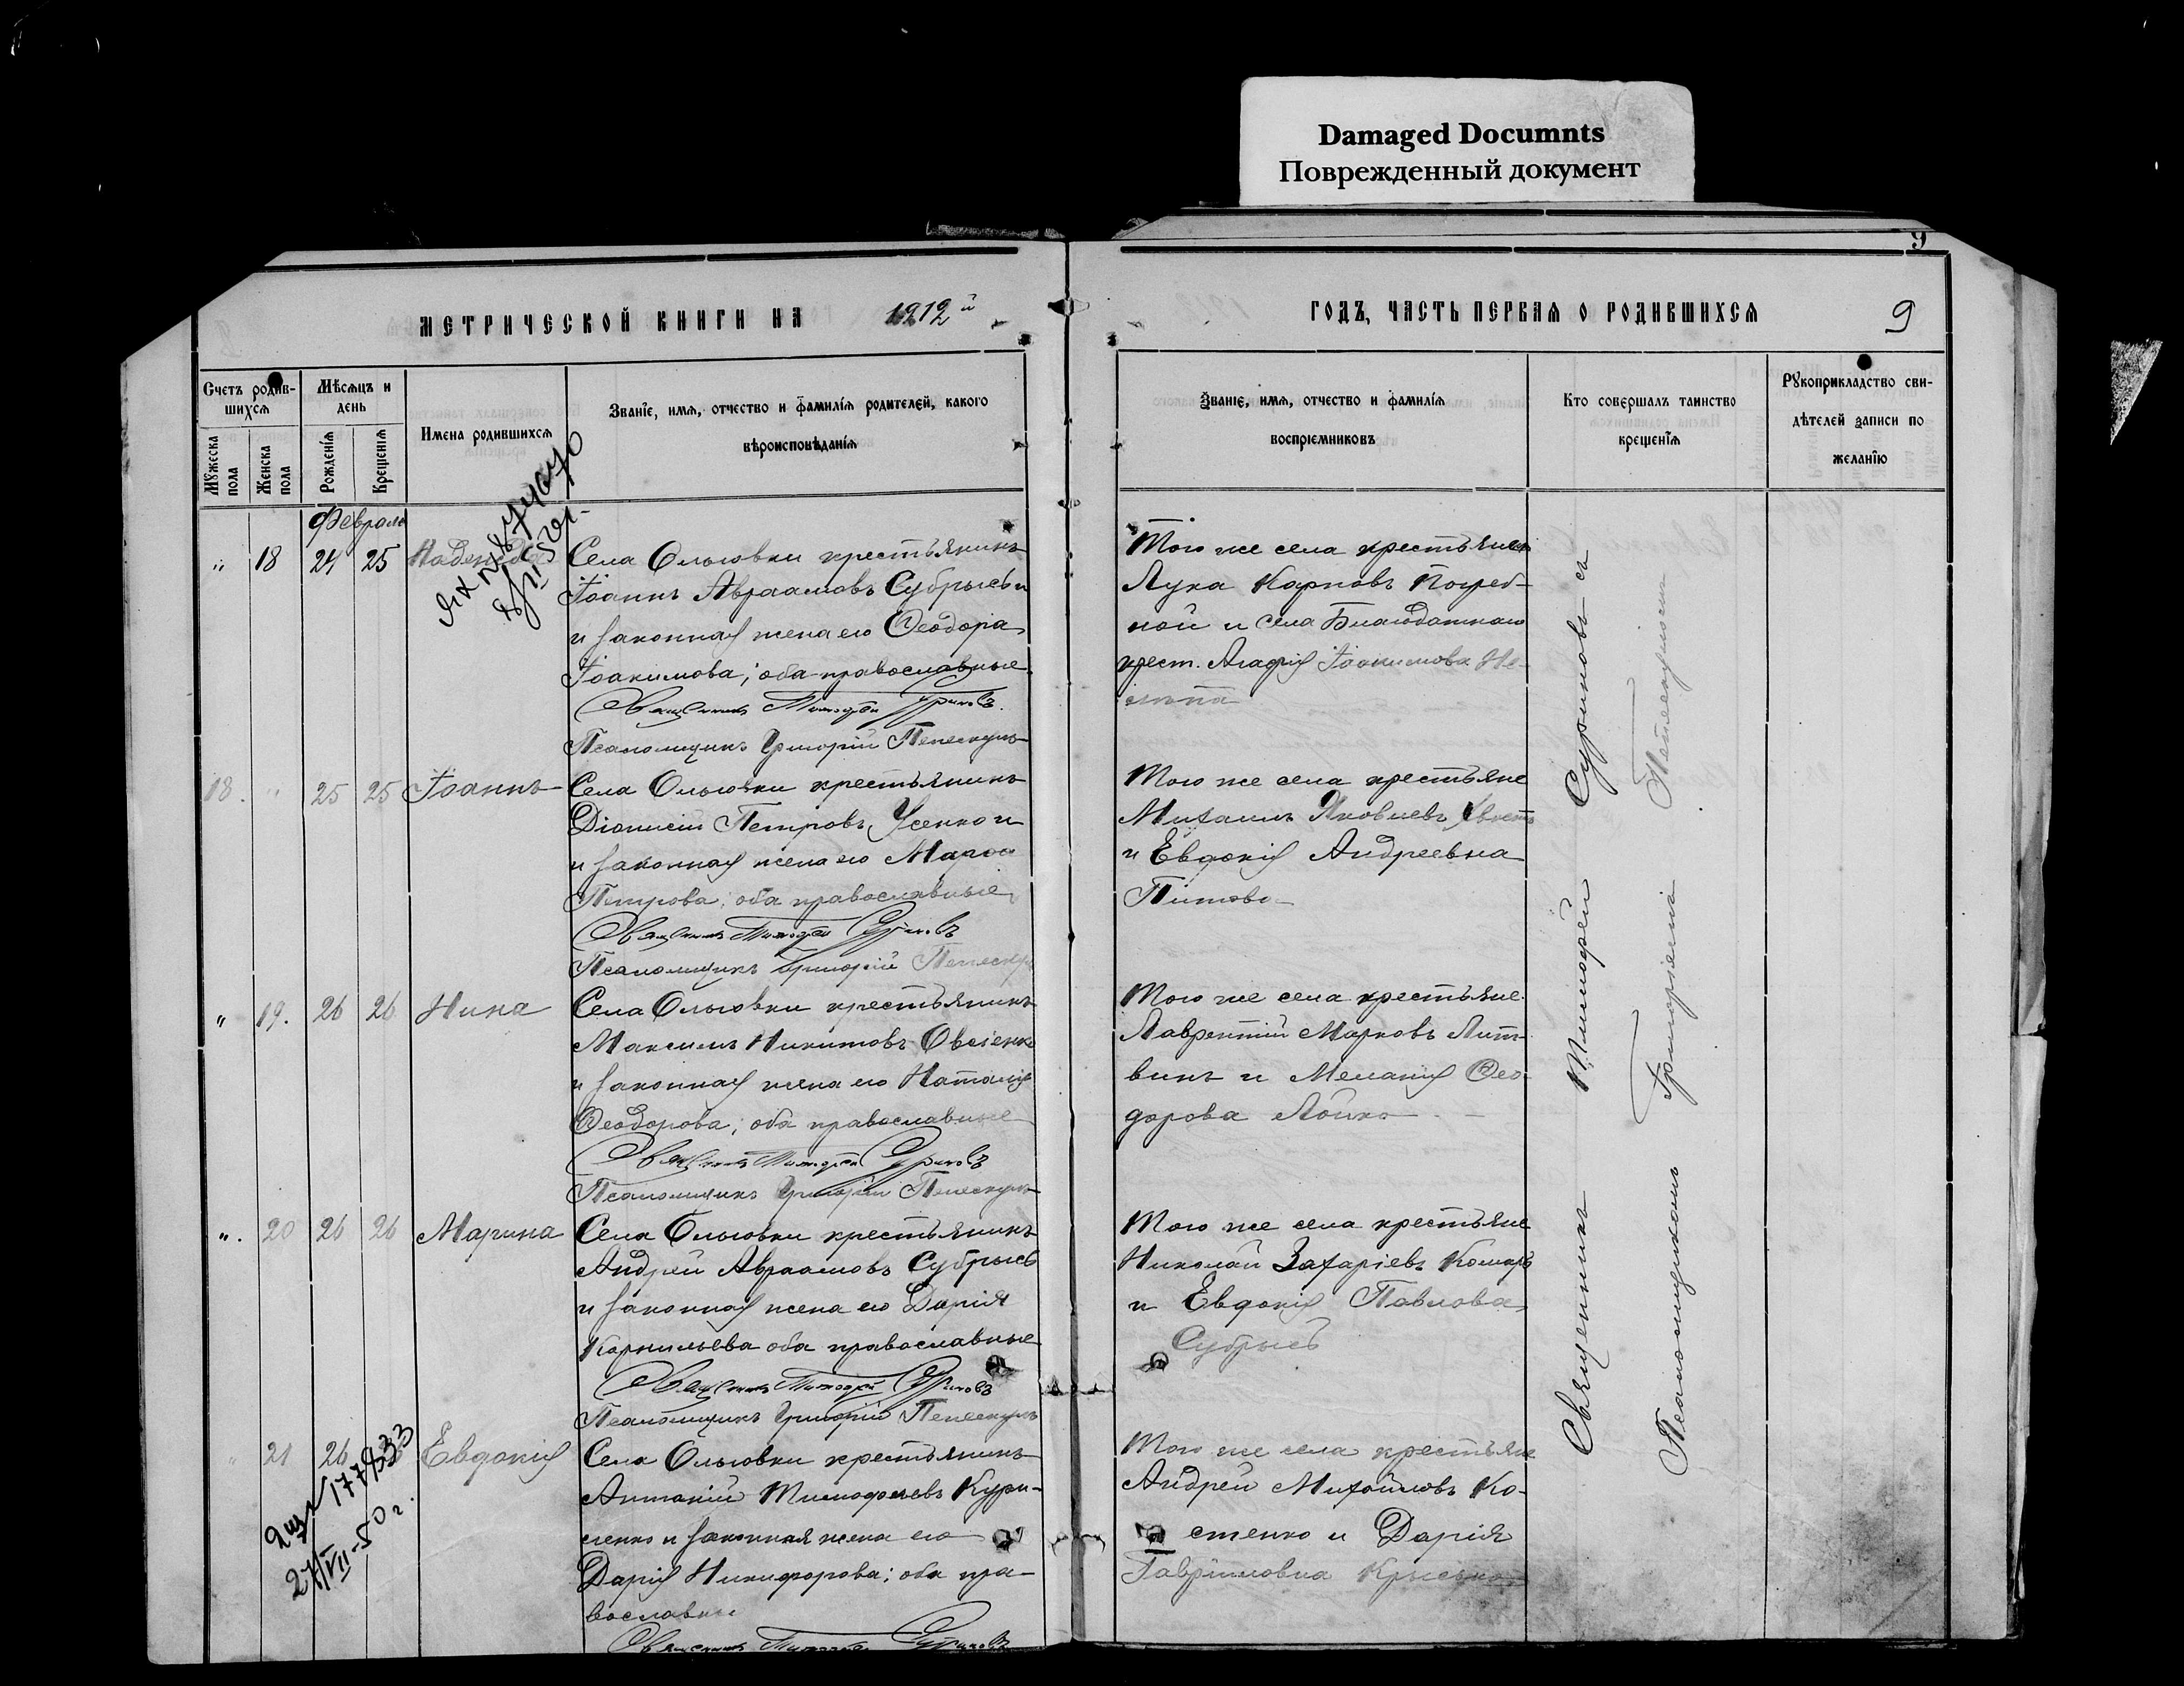 Damaged Documnts
Поврежденный документ
9
МЕТРИЧЕСКОЙ КНИГИ НА 1912й
ГОДЪ, ЧАСТЬ ПЕРВАЯ О РОДИВШИХСЯ
9
Счетъ родив-
шихся
Мужеска
пола
Женска
пола
Мѣсяцъ и
день
Рожденія
Крещенія
Имена родившихся
Званіе, имя, отчество и фамилія родителей, какого
вѣроисповѣданія
Званіе, имя, отчество и фамилія
воспріемниковъ
Кто совершалъ таинство
крещенія
Рукоприкладство сви-
дѣтелей записи по
желанію
Февраль
" 18 24 25 Надежда
Села Ольговки крестьянинъ
Іоаннъ Авраамовъ Субрысь
и законная жена его Ѳеодора
Іоакимова; оба православные
Священникъ Тимофей Суриновъ
Псаломщикъ Григорій Пепескулъ
Того же села крестьяне
Лука Карповъ Погреб-
ной и села Благодатнаго
крест. Агафія Іоакимова
18. " 25 25 Іоаннъ
Села Ольговки крестьянинъ
Діонисій Петровъ Усенко
и законная жена его Марѳа
Петрова; оба православные
Священникъ Тимофей Суриновъ
Псаломщикъ Григорій Пепескулъ
Того же села крестьяне
Михаилъ Яковлевъ
и Евдокія Андреевна
" 19. 26 26 Нина
Села Ольговки крестьянинъ
Максимъ Никитовъ Овсіенко
и законная жена его Наталія
Ѳеодорова; оба православные
Священникъ Тимофей Суриновъ
Псаломщикъ Григорій Пепескулъ
Того же села крестьяне
Лаврентій Марковъ Лит-
винъ и Меланія Ѳео-
дорова Лойко
" 20 26 26 Марина
Села Ольговки крестьянинъ
Андрей Авраамовъ Субрысь
и законная жена его Дарія
Корнильева оба православные
Священникъ Тимофей Суриновъ
Псаломщикъ Григорій Пепескулъ
Того же села крестьяне
Николай Захаріевъ Комаръ
и Евдокія Павлова
Субрысь
" 21 26 Евдокія
177933
27/VII-50 г.
Села Ольговки крестьянинъ
Антоній Тимофеевъ Кури-
ленко и законная жена его
Дарія Никифорова; оба пра-
вославные
Священникъ Тимофей Суриновъ
Того же села крестьяне
Андрей Михайловъ Ко-
стенко и Дарія
Гавріиловна
Священникъ Тимофей Суриновъ съ
Псаломщикомъ Григоріемъ Пепескуломъ